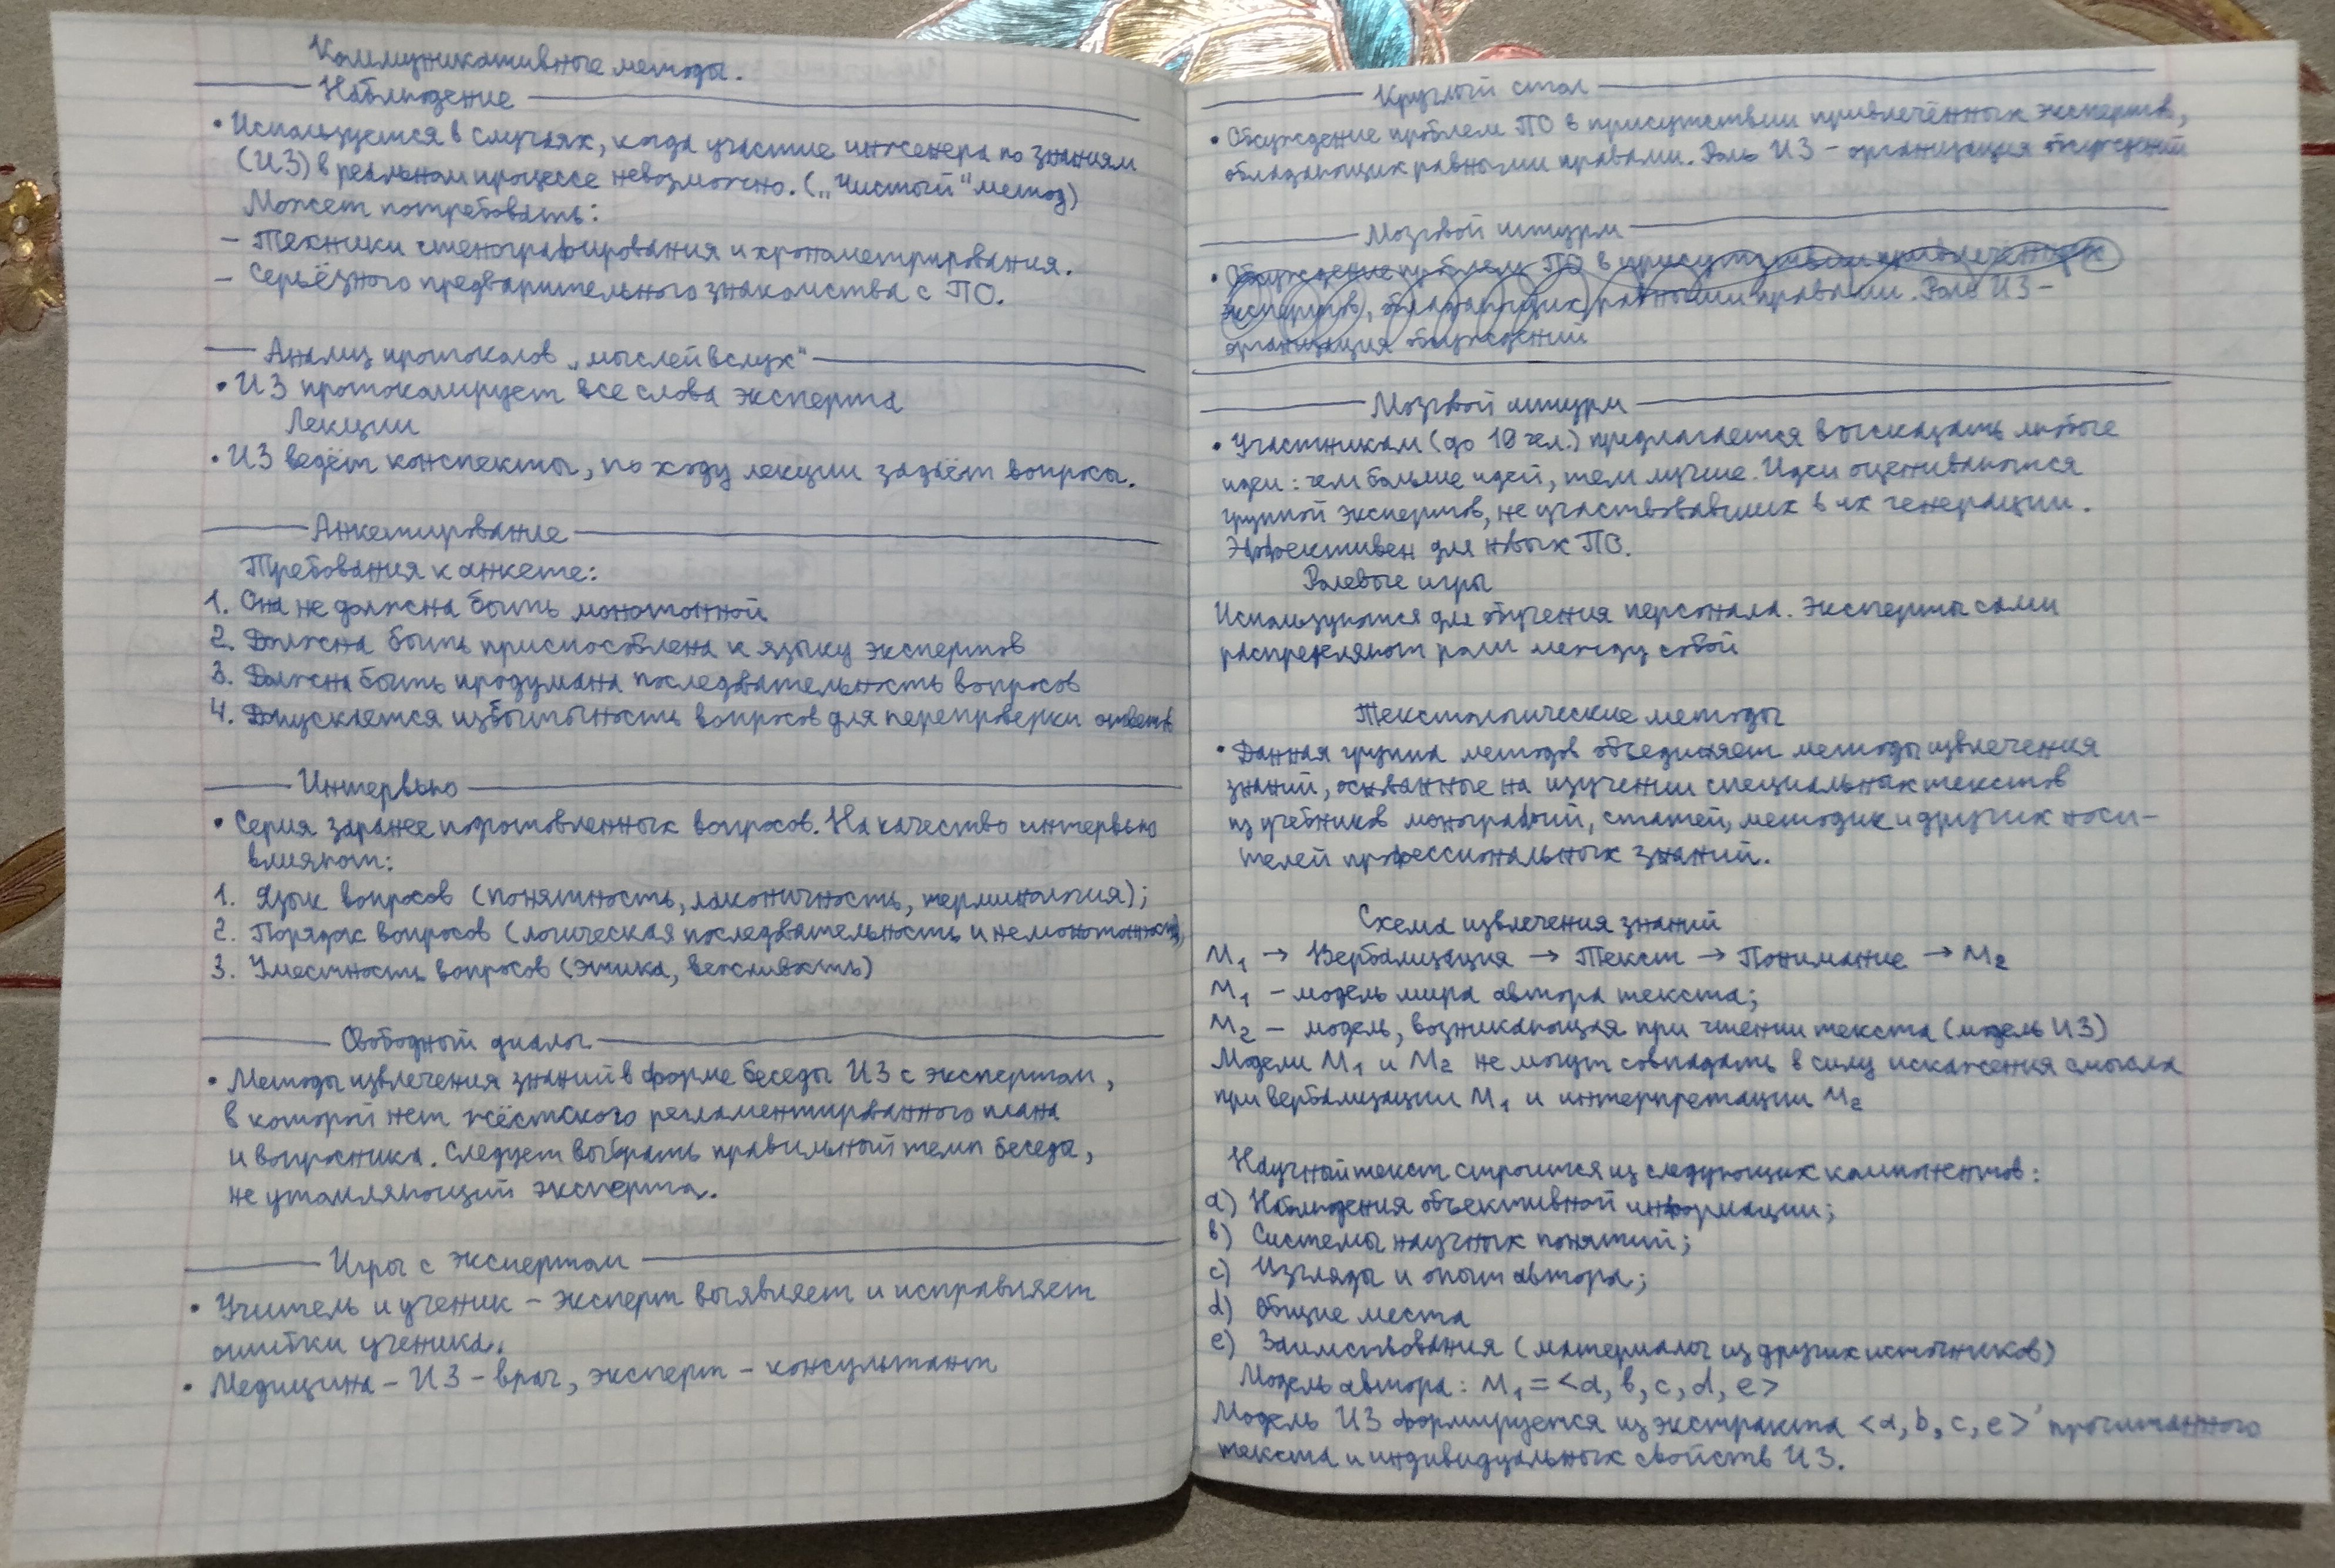 Коммуникативные методы.
Наблюдение
• Используется в случаях, когда участие инженера по знаниям
(ИЗ) в реальном процессе невозможно. („Чистый“ метод)
Может потребовать:
– Техники стенографирования и хронометрирования.
– Серьёзного предварительного знакомства с ПО.
Анализ протоколов „мыслей вслух“
• ИЗ протоколирует все слова эксперта
Лекции
• ИЗ ведёт конспекты, по ходу лекции задаёт вопросы.
Анкетирование
Требования к анкете:
1. Она не должна быть монотонной
2. Должна быть приспособлена к языку экспертов
3. Должна быть продумана последовательность вопросов
4. Допускается избыточность вопросов для перепроверки ответов
Интервью
• Серия заранее подготовленных вопросов. На качество интервью
влияют:
1. Язык вопросов (понятность, лаконичность, терминология);
2. Порядок вопросов (логическая последовательность и немонотонность)
3. Уместность вопросов (этика, вежливость)
Свободный диалог
• Методы извлечения знаний в форме беседы ИЗ с экспертом,
в которой нет жёсткого регламентированного плана
и вопросника. Следует выбрать правильный темп беседы,
не утомляющий эксперта.
Игры с экспертом
• Учитель и ученик – эксперт выявляет и исправляет
ошибки ученика.
• Медицина – ИЗ – врач, эксперт – консультант
Круглый стол
• Обсуждение проблем ПО в присутствии привлечённых экспертов,
обладающих равными правами. Роль ИЗ – организация обсуждений
Мозговой штурм
• Обсуждение проблем ПО в присутствии привлечённых
экспертов, обладающих равными правами. Роль ИЗ –
организация обсуждений
Мозговой штурм
• Участникам (до 10 чел.) предлагается высказать любые
идеи: чем больше идей, тем лучше. Идеи оцениваются
группой экспертов, не участвовавших в их генерации.
Эффективен для новых ПО.
Ролевые игры
Используются для обучения персонала. Эксперты сами
распределяют роли между собой
Текстологические методы
• Данная группа методов объединяет методы извлечения
знаний, основанные на изучении специальных текстов
из учебников монографий, статей, методик и других носи-
телей профессиональных знаний.
Схема извлечения знаний
M₁ → Вербализация → Текст → Понимание → M₂
M₁ – модель мира автора текста;
M₂ – модель, возникающая при чтении текста (модель ИЗ)
Модели M₁ и M₂ не могут совпадать в силу искажения смысла
при вербализации M₁ и интерпретации M₂
Научный текст строится из следующих компонентов:
a) Наблюдения объективной информации;
b) Системы научных понятий;
c) Взгляды и опыт автора;
d) Общие места
e) Заимствования (материалы из других источников)
Модель автора: M₁ = <a, b, c, d, e>
Модель ИЗ формируется из экстракта <a, b, c, e>' прочитанного
текста и индивидуальных свойств ИЗ.